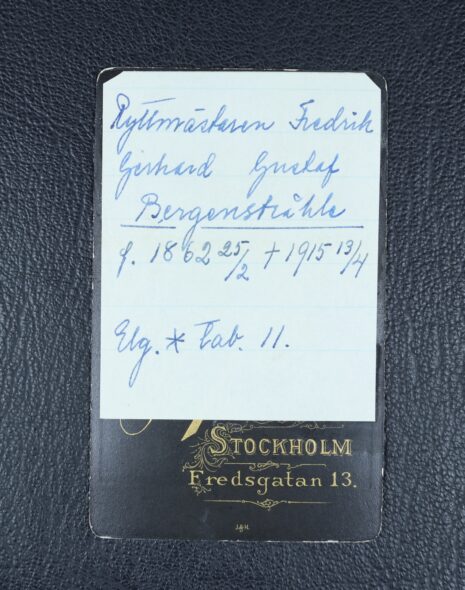 Ryttmästaren Fredrik
Gerhard Gustaf
Bergenstråhle
f. 1862 25/2 + 1915 13/4
Elg. * Tab. 11.
STOCKHOLM
Fredsgatan 13.